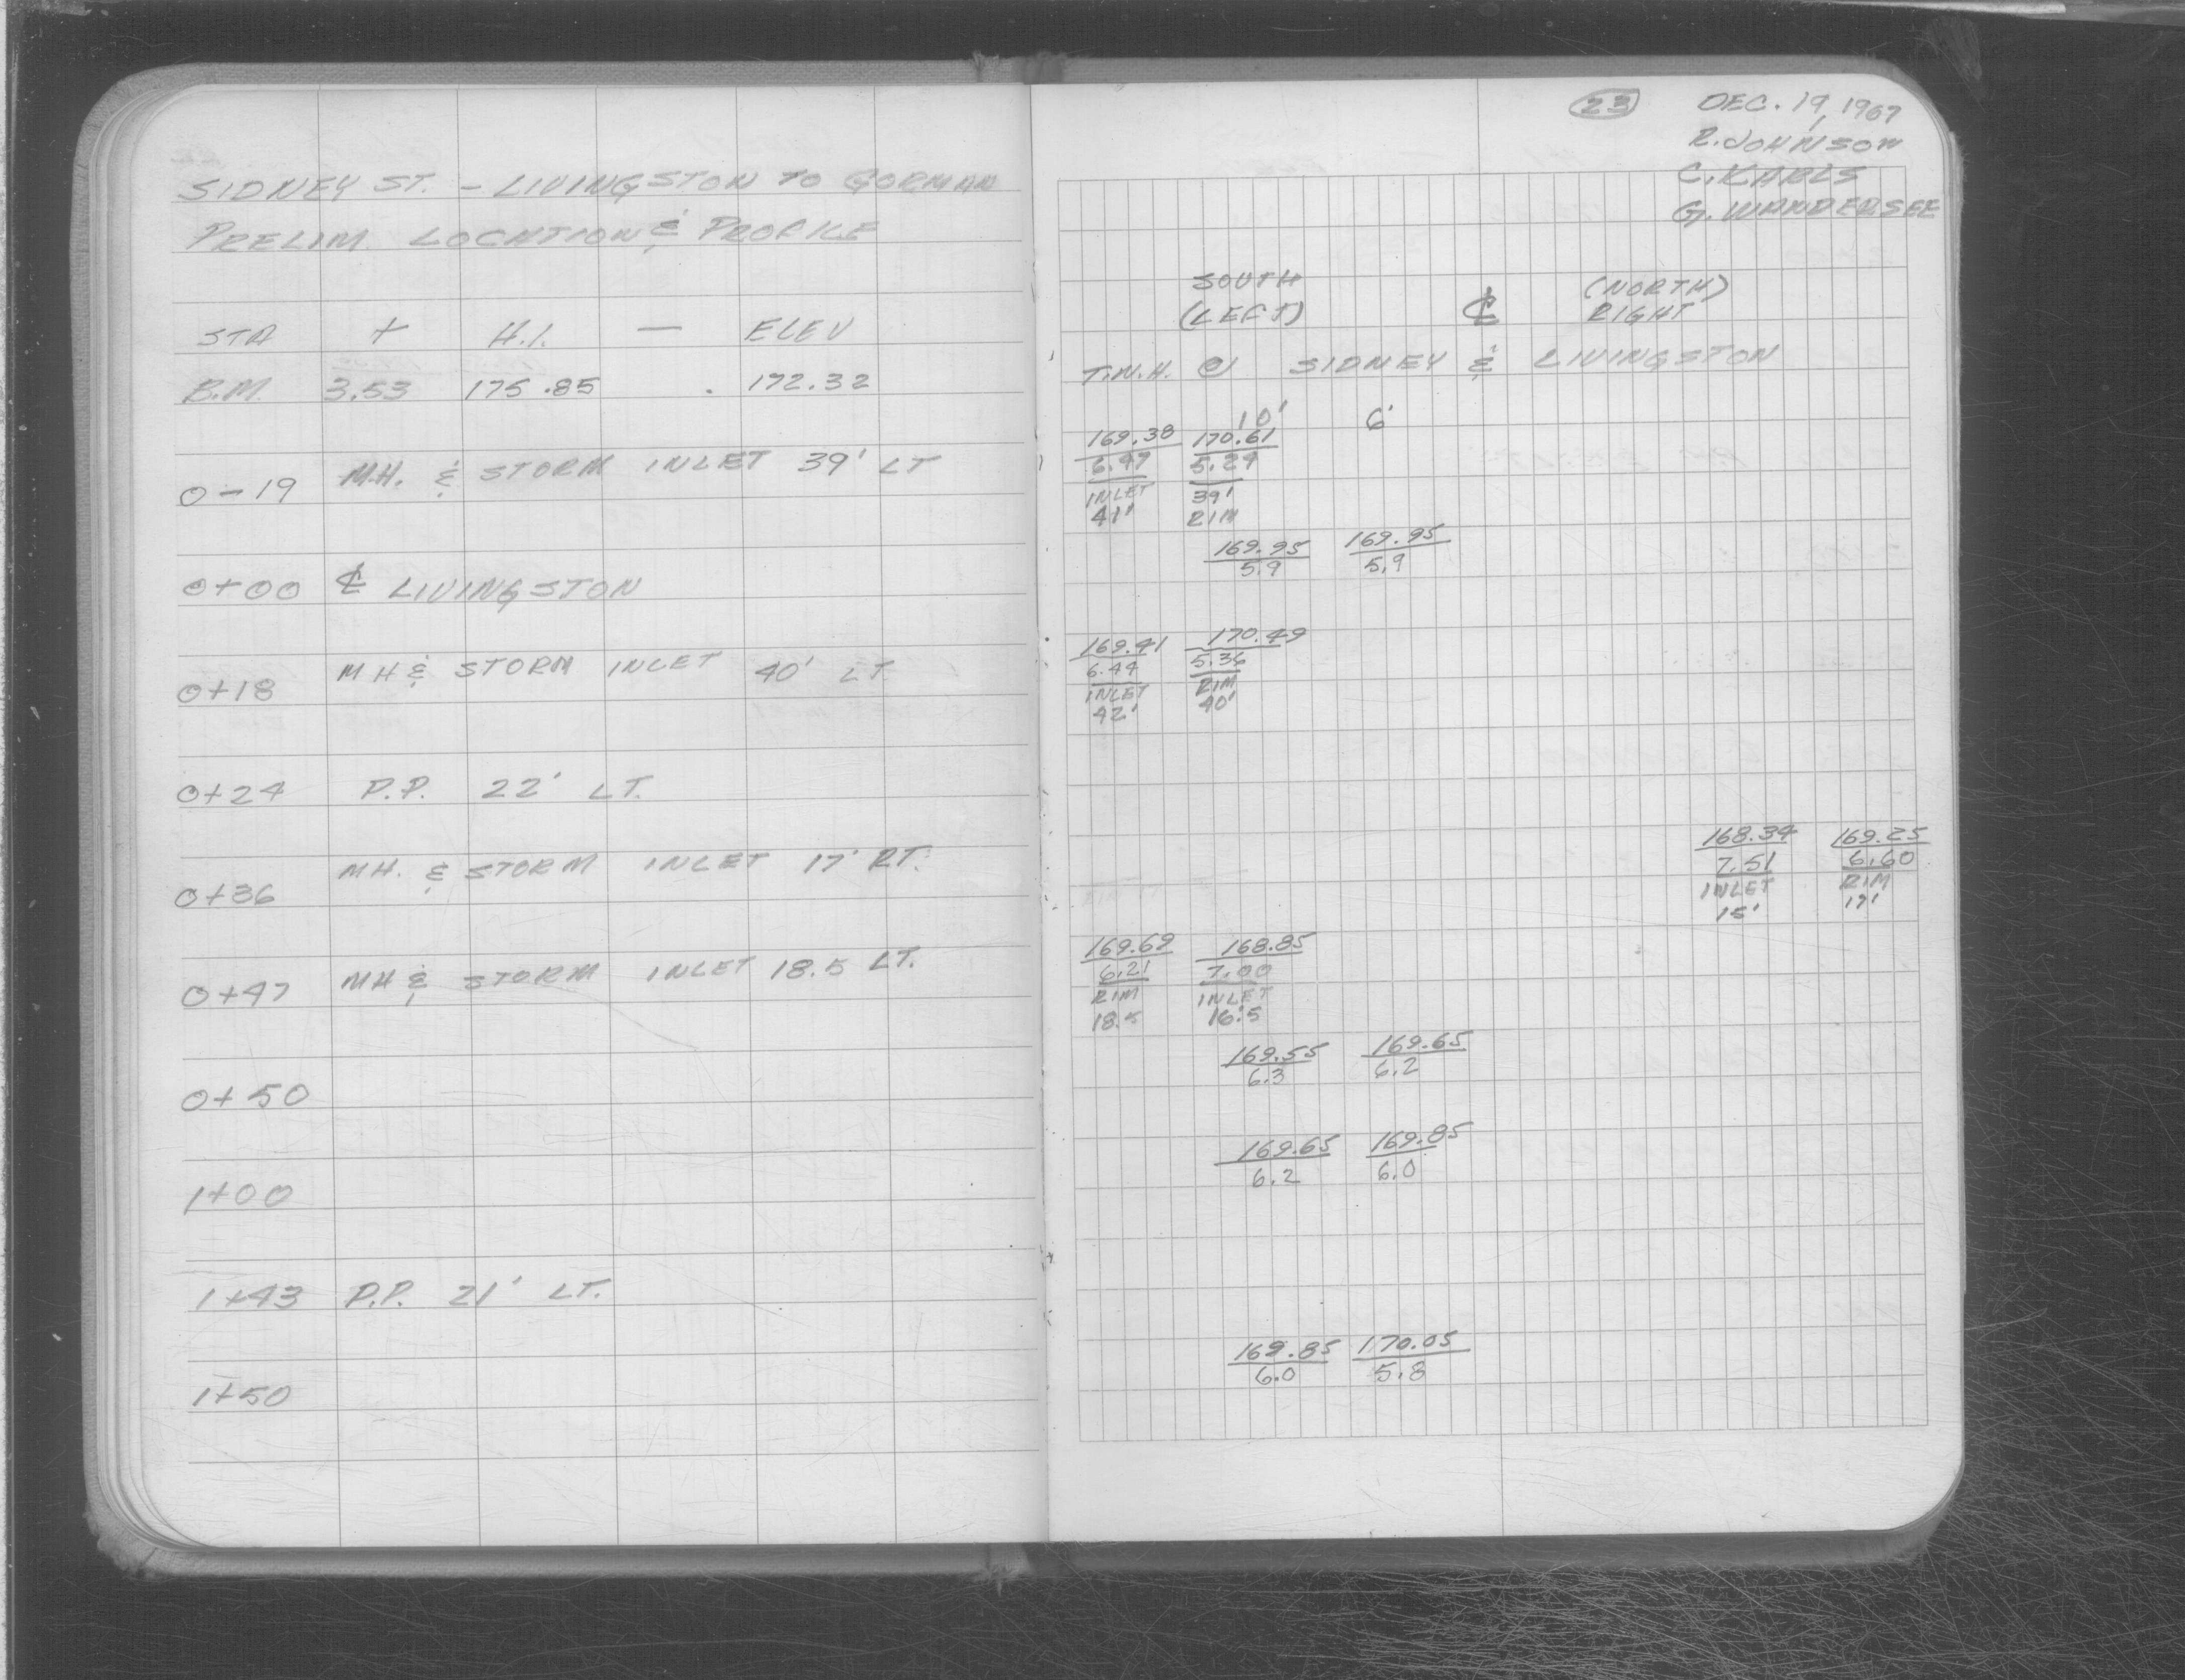 SIDNEY ST. - LIVINGSTON TO GORMAN
PRELIM. LOCATION & PROFILE
STA + H.I. — ELEV
B.M. 3.53 175.85 172.32
0-19 M.H. & STORM INLET 39' LT
0+00 ℄ LIVINGSTON
0+18 MH & STORM INLET 40' LT.
0+24 P.P. 22' LT.
0+36 MH. & STORM INLET 17' RT.
0+47 MH & STORM INLET 18.5 LT.
0+50
1+00
1+43 P.P. 21' LT.
1+50
23 DEC. 19, 1967
R. JOHNSON
C. KARLS
G. WANDERSEE
SOUTH (NORTH)
(LEFT) ℄ RIGHT
T.N.H. @ SIDNEY & LIVINGSTON
10' 6'
169.38 170.61
6.47 5.24
INLET 39'
41' RIM
169.95 169.95
5.9 5.9
169.41 170.49
6.44 5.36
INLET RIM
42' 40'
168.34 169.25
7.51 6.60
INLET RIM
15' 17'
169.69 168.85
6.21 7.00
RIM INLET
18.5 16.5
169.55 169.65
6.3 6.2
169.65 169.85
6.2 6.0
169.85 170.05
6.0 5.8